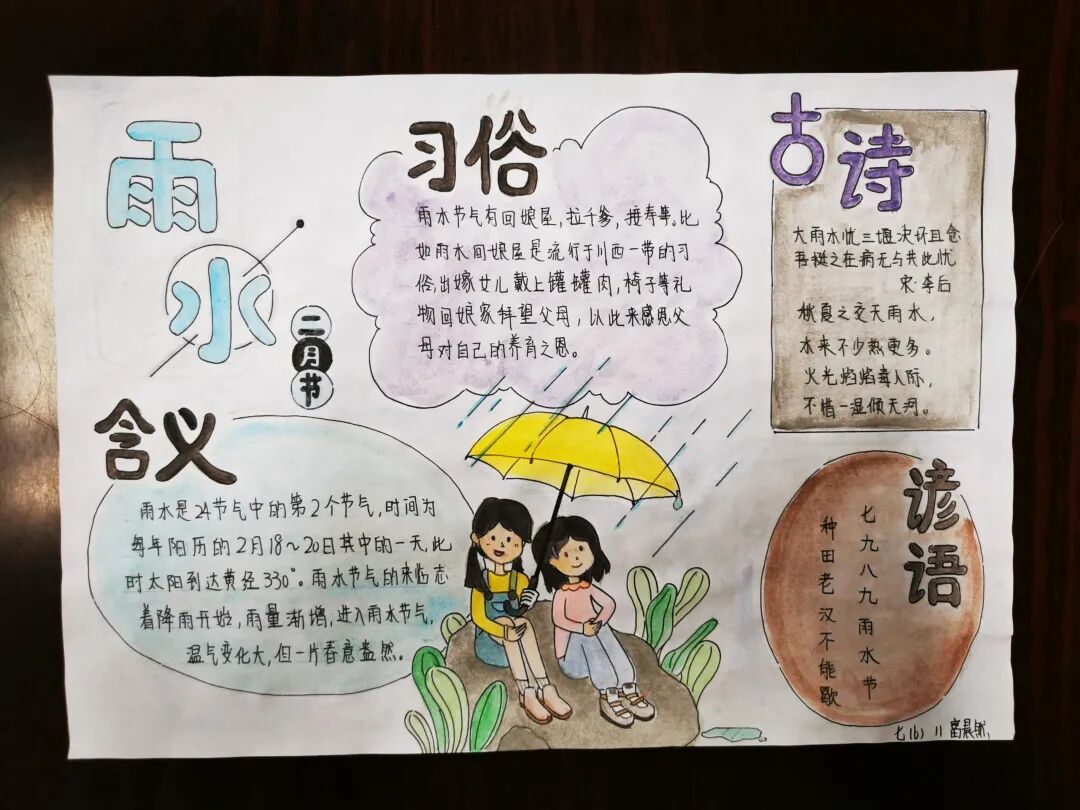 雨
水
二月节
习俗
雨水节气有回娘屋，拉干爹，接寿等。比
如雨水回娘屋是流行于川西一带的习
俗，出嫁女儿戴上罐罐肉，椅子等礼
物回娘家拜望父母，以此来感恩父
母对自己的养育之恩。
古诗
大雨水忧三堰决坏且仓
吾挺之在病无与共此忧
宋·李后
秋夏之交天雨水，
水来不少热更多。
火光焰焰毒人际，
不惜一湿倾天河。
含义
雨水是24节气中的第2个节气，时间为
每年阳历的2月18～20日其中的一天，此
时太阳到达黄经330°。雨水节气的来临志
着降雨开始，雨量渐增，进入雨水节气，
温气变化大，但一片春意盎然。
谚语
七九八九雨水节
种田老汉不能歇
七(6) 11